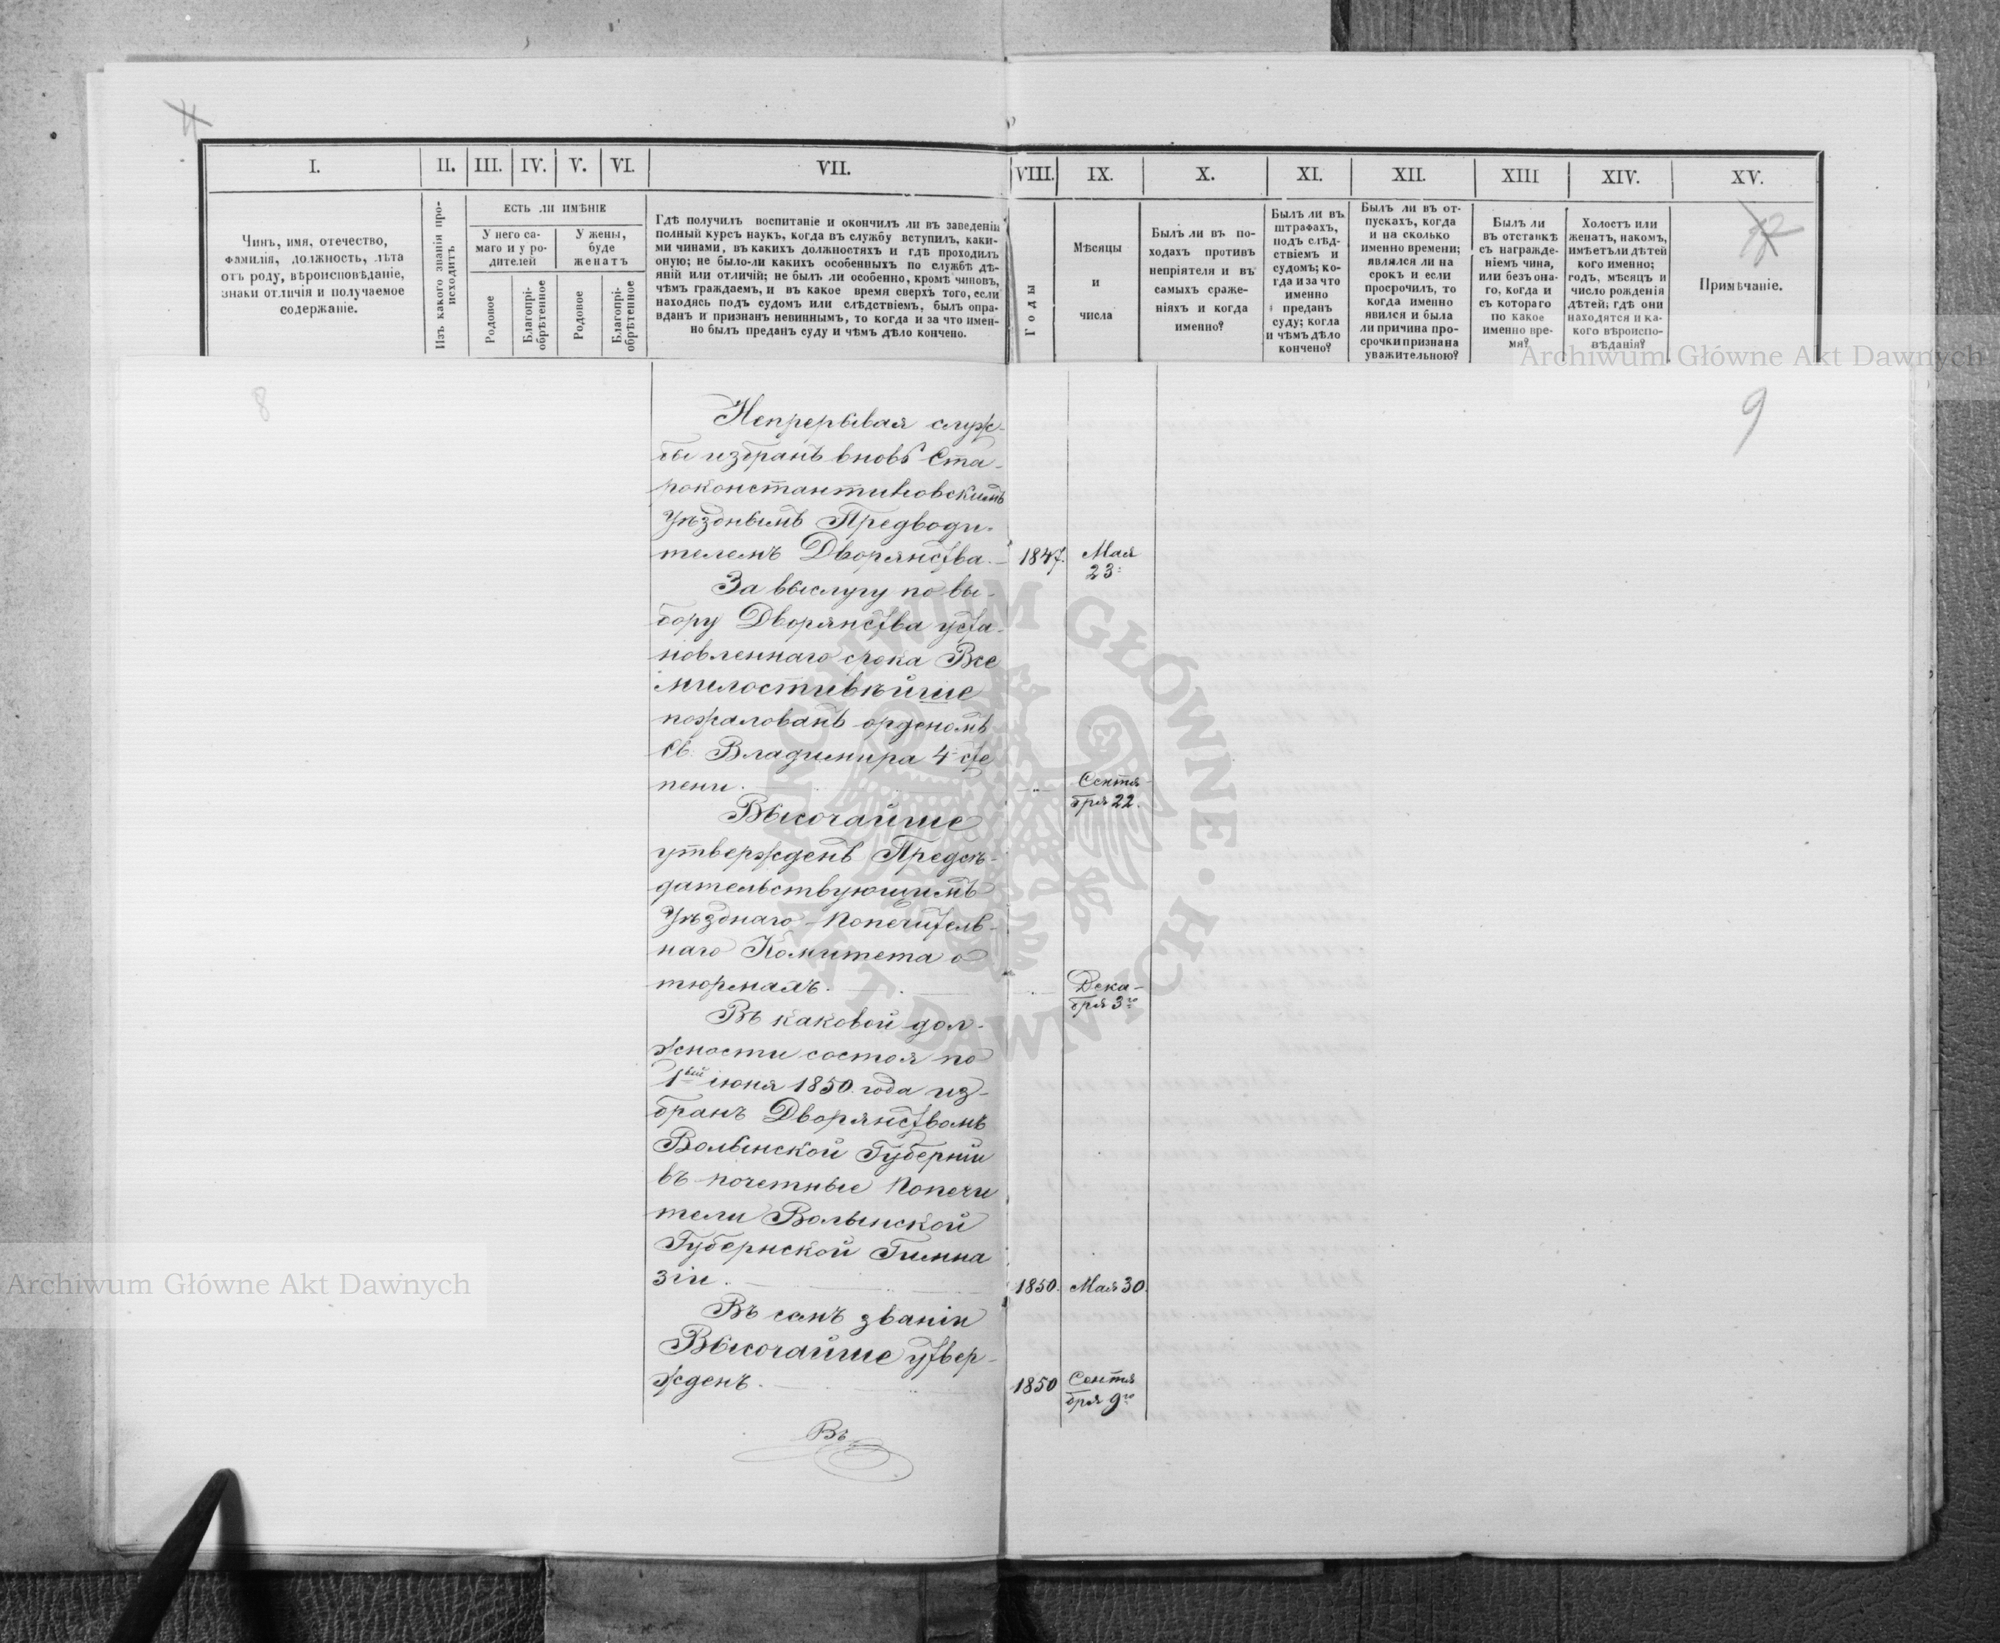 I.
II.
III.
IV.
V.
VI.
VII.
VIII.
IX.
X.
XI.
XII.
XIII
XIV.
XV.
Чинъ, имя, отечество,
фамилія, должность, лѣта
отъ роду, вѣроисповѣданіе,
знаки отличія и получаемое
содержаніе.
Изъ какого званія про-
исходитъ
ЕСТЬ ЛИ ИМѢНІЕ
У него са-
маго и у ро-
дителей
У жены,
буде
женатъ
Родовое
Благопрі-
обрѣтенное
Родовое
Благопрі-
обрѣтенное
Гдѣ получилъ воспитаніе и окончилъ ли въ заведеніи
полный курсъ наукъ, когда въ службу вступилъ, каки-
ми чинами, въ какихъ должностяхъ и гдѣ проходилъ
оную; не было-ли какихъ особенныхъ по службѣ дѣ-
яній или отличій; не былъ ли особенно, кромѣ чиновъ,
чѣмъ граждаемъ, и въ какое время сверхъ того, если
находясь подъ судомъ или слѣдствіемъ, былъ опра-
вданъ и признанъ невиннымъ, то когда и за что имен-
но былъ преданъ суду и чѣмъ дѣло кончено.
Годы
Мѣсяцы
и
числа
Былъ ли въ по-
ходахъ противъ
непріятеля и въ
самыхъ сраже-
ніяхъ и когда
именно?
Былъ ли въ
штрафахъ,
подъ слѣд-
ствіемъ и
судомъ; ко-
гда и за что
именно
преданъ
суду; когда
и чѣмъ дѣло
кончено?
Былъ ли въ от-
пускахъ, когда
и на сколько
именно времени;
являлся ли на
срокъ и если
просрочилъ, то
когда именно
явился и была
ли причина про-
срочки признана
уважительною?
Былъ ли
въ отставкѣ
съ награжде-
ніемъ чина,
или безъ она-
го, когда и
съ котораго
по какое
именно вре-
мя?
Холостъ или
женатъ, на комъ,
имѣетъ ли дѣтей
кого именно;
годъ, мѣсяцъ и
число рожденія
дѣтей; гдѣ они
находятся и ка-
кого вѣроиспо-
вѣданія?
Примѣчаніе.
Archiwum Główne Akt Dawnych
8
9
Непрерывая служ-
бы избранъ вновь Ста-
роконстантиновскимъ
Уѣзднымъ Предводи-
телемъ Дворянства. 1847. Мая
23:
За выслугу по вы-
бору Дворянства уста-
новленнаго срока Все
милостивѣйше
пожалованъ орденомъ
Св. Владимира 4 сте
пени. Сентя-
бря 22.
Высочайше
утвержденъ Предсѣ-
дательствующимъ
Уѣзднаго Попечитель-
наго Комитета о
тюрмахъ. Дека-
бря 3го
Въ каковой дол-
жности состоя по
1вый іюня 1850 года из-
бранъ Дворянствомъ
Волынской Губерніи
въ почетные Попечи
тели Волынской
Губернской Гимна
зіи. 1850. Мая 30.
Въ семъ званіи
Высочайше утвер-
жденъ. 1850 Сентя
бря 9го
Въ
ARCHIWUM GŁÓWNE · AKT DAWNYCH ·
Archiwum Główne Akt Dawnych